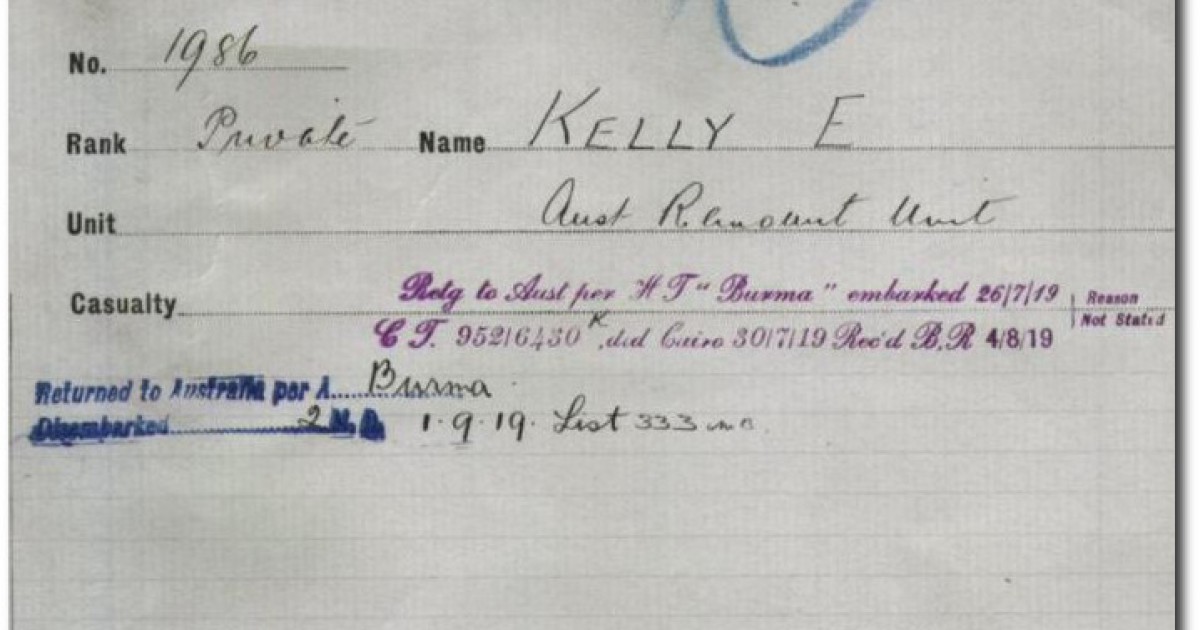 No. 1986
Rank Private Name KELLY E
Unit Aust Remount Unit
Casualty Retg to Aust per H T "Burma" embarked 26/7/19 Reason Not Stated
C T. 952/6430 K, dtd Cairo 30/7/19 Rec'd B.R 4/8/19
Returned to Australia per A Burma
Disembarked 2 M.D. 1.9.19. List 333